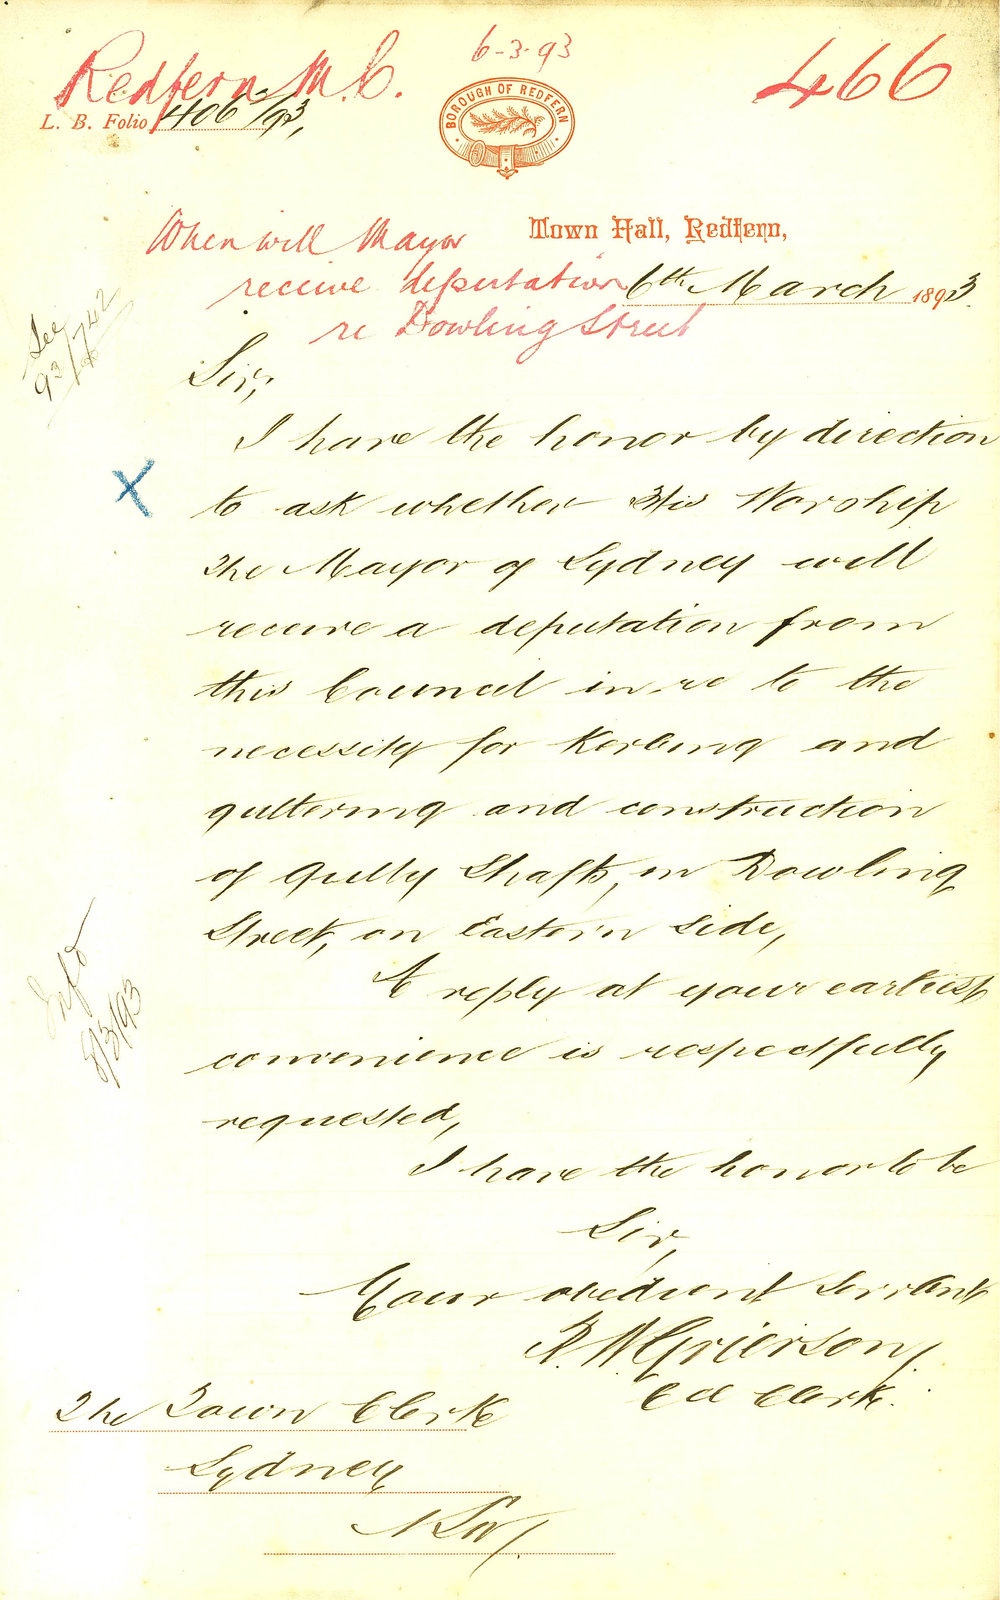 Redfern M. C.
6-3-93
466
L. B. Folio 406/93,
BOROUGH OF REDFERN
When will Mayor
receive deputation
re Dowling Street
Town Hall, Redfern,
6th March 1893.
See
93/742
Sir,
I have the honor by direction
to ask whether His Worship
The Mayor of Sydney will
receive a deputation from
this Council in re to the
necessity for Kerbing and
guttering and construction
of Gully Shafts, in Dowling
Street, on Eastern Side,
A reply at your earliest
convenience is respectfully
requested,
I have the honor to be
Sir,
Your obedient Servant
Grierson
Cl Clerk.
Info
8/3/93
The Town Clerk
Sydney
NSW.